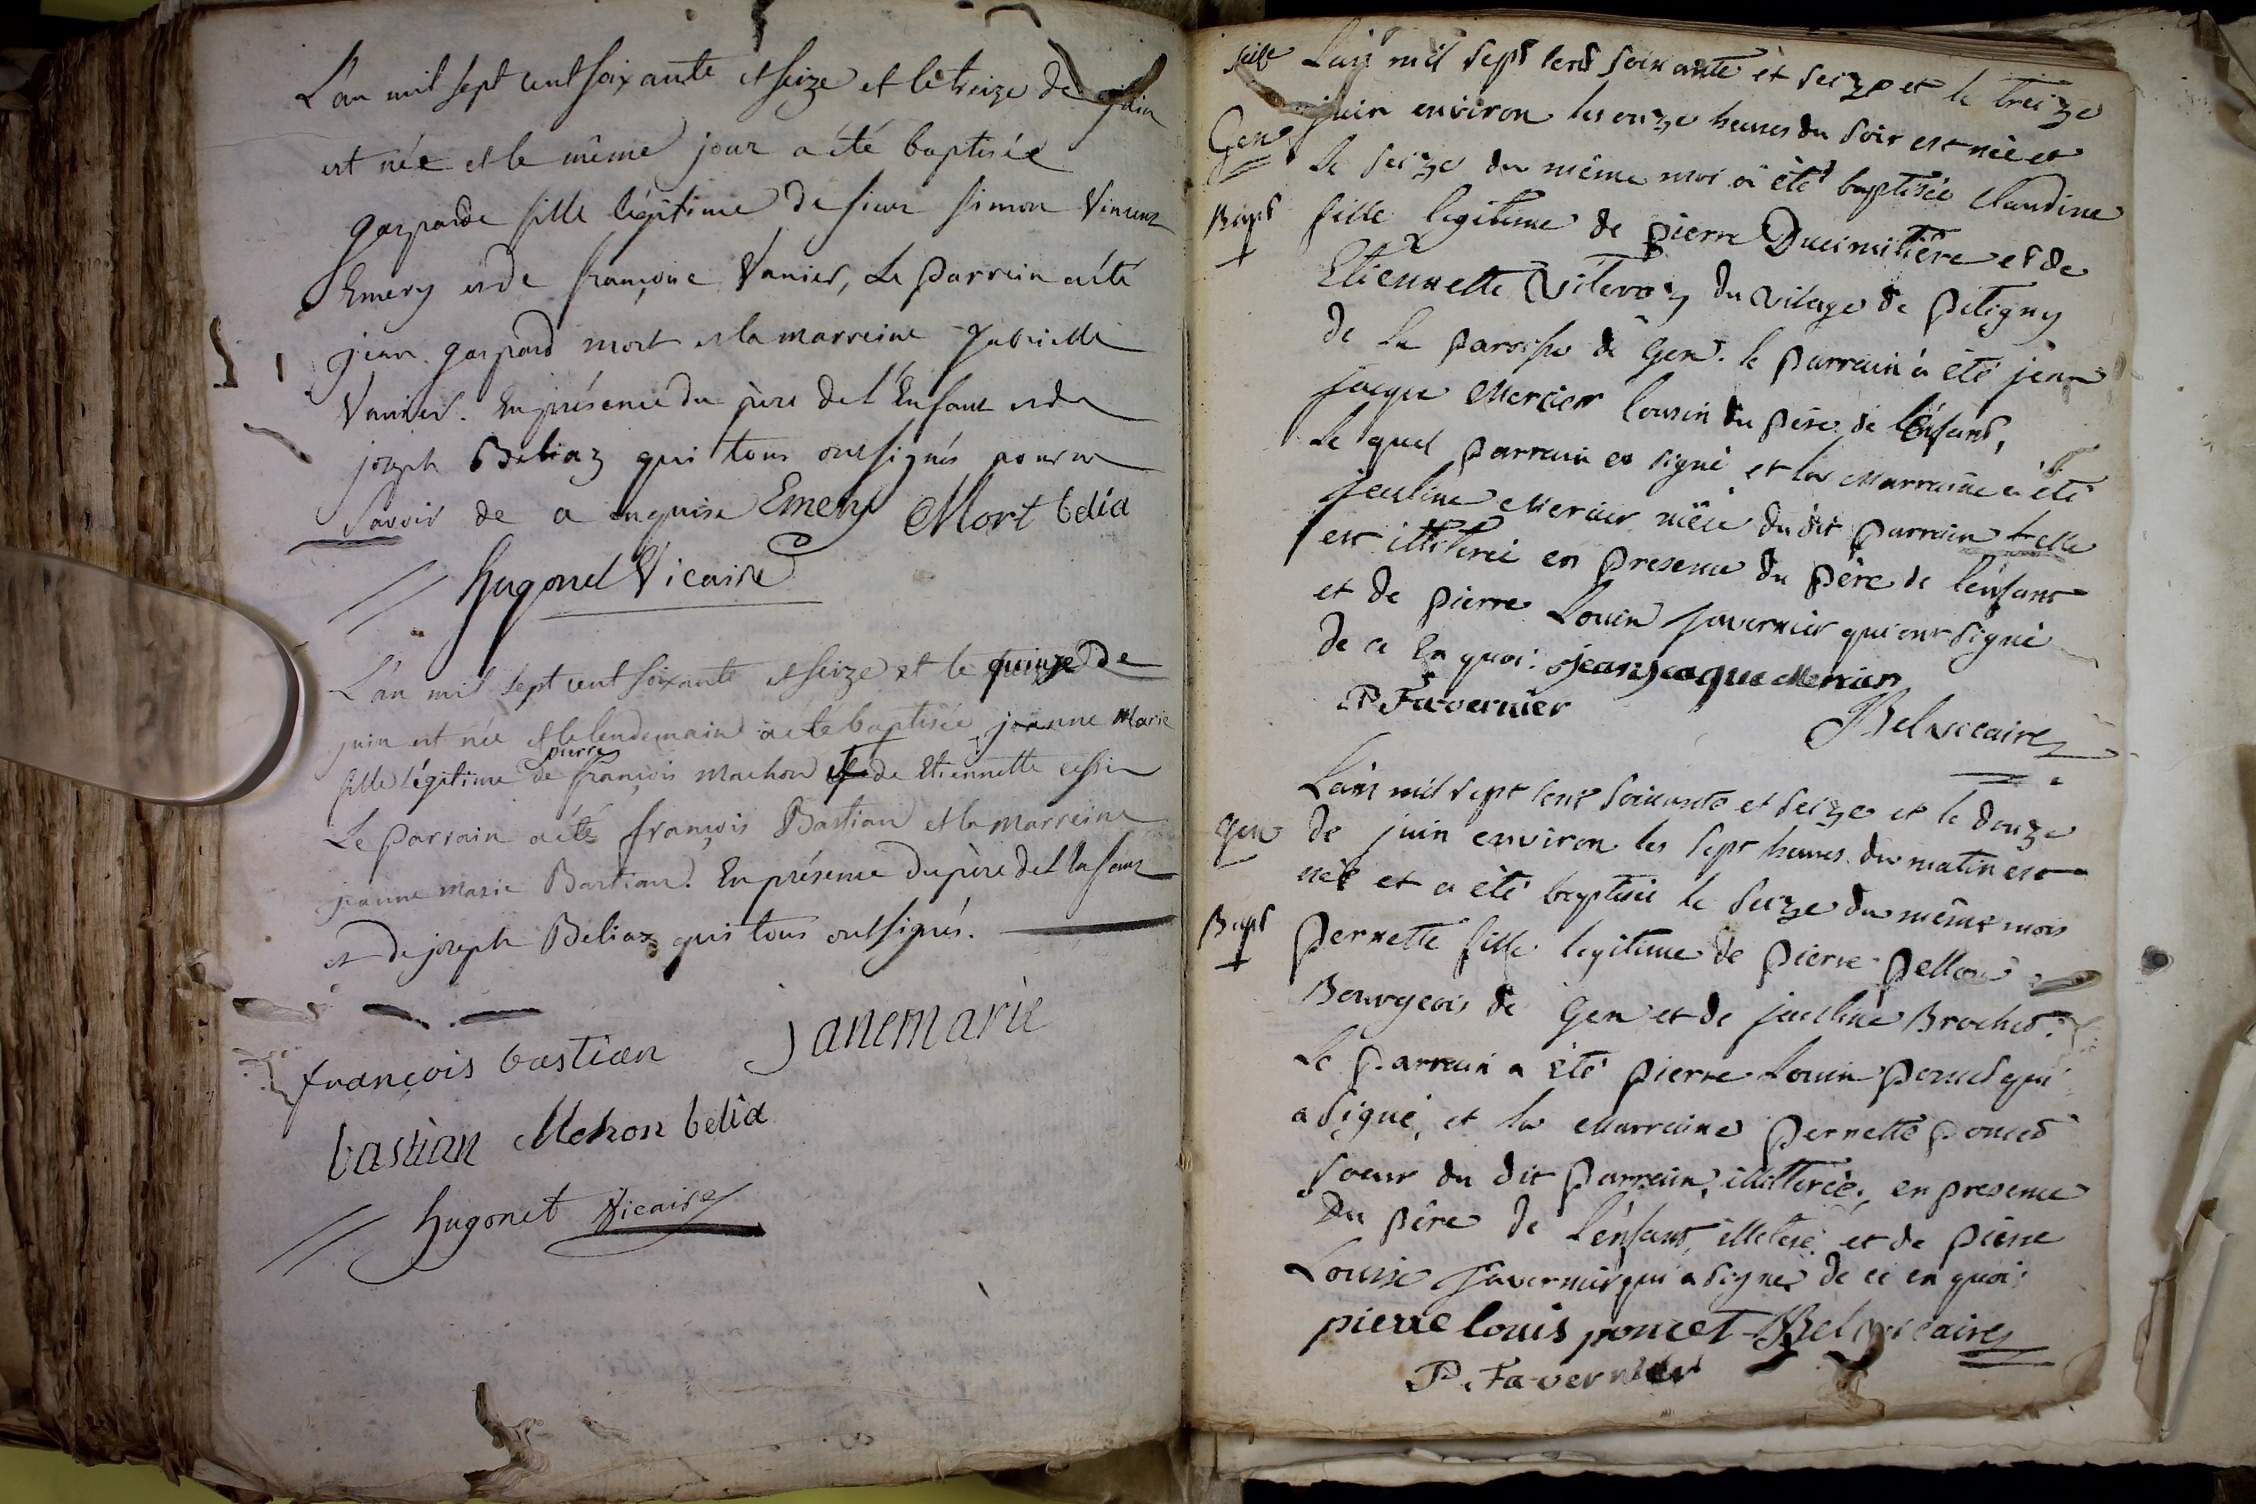 L'an mil sept cent soixante et seize et le treize de juin
est née et le même jour a été baptisée
gasparde fille légitime de sieur simon Vincent
Emery et de françoise Vanier, Le parrein a été
jean gaspard mort et la marreine gabrielle
Vanier. En présence du père de l'Enfant et de
joseph Beliaz qui tous ont signés pour
savoir de a enquise Emery Mort belia
hugonet Vicaire
L'an mil sept cent soixante et seize et le quinze de
juin est née et le lendemain a été baptisée jeanne Marie
pierre
fille légitime de françois machon et de Etiennette
Le parrain a été françois Bastian et la marreine
jeanne marie Bastian. En présence du père de l'enfant
et de joseph Beliaz qui tous ont signés.
françois bastian janemarie
bastian Mohon belia
hugonet Vicaire
L'an mil sept cent soixante et seize et le treize
juin environ les onze heures du soir est née et
Gen
le seize du même moi a été baptisée Claudine
Bapt
fille legitime de pierre Ducimitière et de
Etiennette Viteroz du vilage de petigny
de la paroisse de Gen. le parrain a été jean
jacque Mercier cousin du père de l'enfant,
le quel parrain a signé et la Marraine a été
jacline Mercier nièce du dit parrain telle
est illiterée en presence du père de l'enfant
et de pierre Louis favernier qui ont signé
de ce en quoi: jean jacque Mercier
P. Favernier
Bel vicaire
L'an mil sept cent soixante et seize et le douze
Gen de juin environ les sept heures du matin est
née et a été baptisée le seize du même mois
Bapt pernette fille legitime de pierre pellou
Bourgeois de Gen et de jacline Brochet.
Le parrain a été pierre Louis poncet qui
a signé, et la Marraine pernette poncet
soeur du dit parrain, illitterée, en presence
du père de l'enfant, illeteré et de pierre
Louis favernier qui a signé de ce en quoi:
pierre louis poncet Bel vicaire
P. Favernier